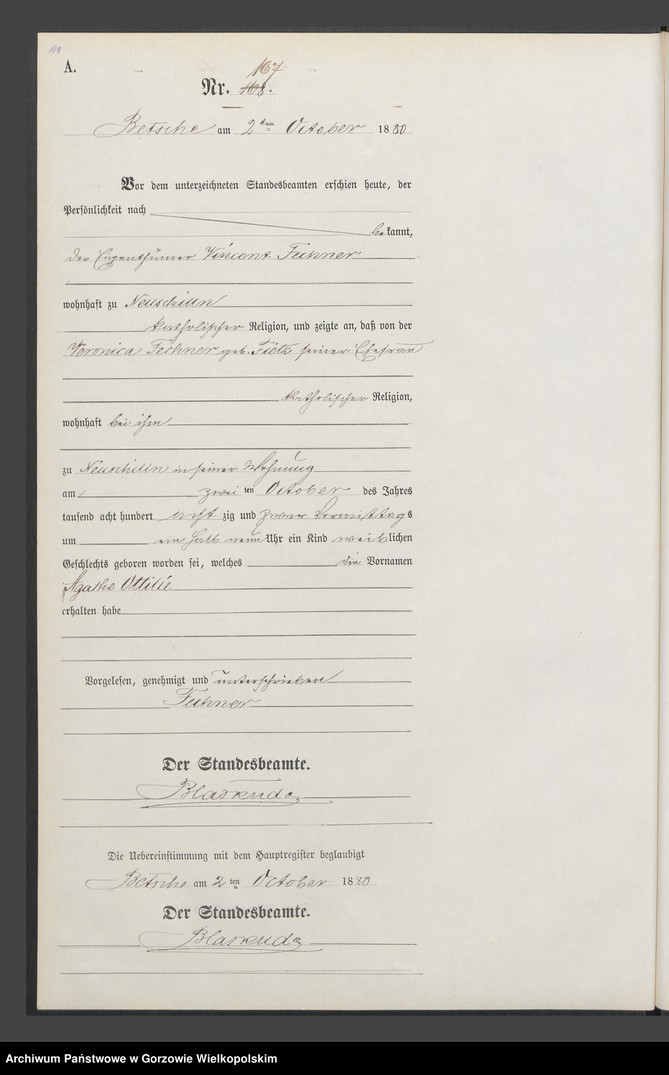 108
A.
167
Nr. 108.
Betsche am 2ten October 1880
Vor dem unterzeichneten Standesbeamten erschien heute, der
Persönlichkeit nach
bekannt,
der Eigenthümer Vincent Fechner
wohnhaft zu Neuschilln
katholischer Religion, und zeigte an, daß von der
Veronica Fechner geb. Fietz seiner Ehefrau
katholischer Religion,
wohnhaft bei ihm
zu Neuschilln in seiner Wohnung
am zwei ten October des Jahres
tausend acht hundert acht zig und Vormittags
um ein halb neun Uhr ein Kind weiblichen
Geschlechts geboren worden sei, welches die Vornamen
Agathe Ottilie
erhalten habe
Vorgelesen, genehmigt und unterschrieben
Fechner
Der Standesbeamte.
Die Uebereinstimmung mit dem Hauptregister beglaubigt
Betsche am 2ten October 1880
Der Standesbeamte.
Archiwum Państwowe w Gorzowie Wielkopolskim